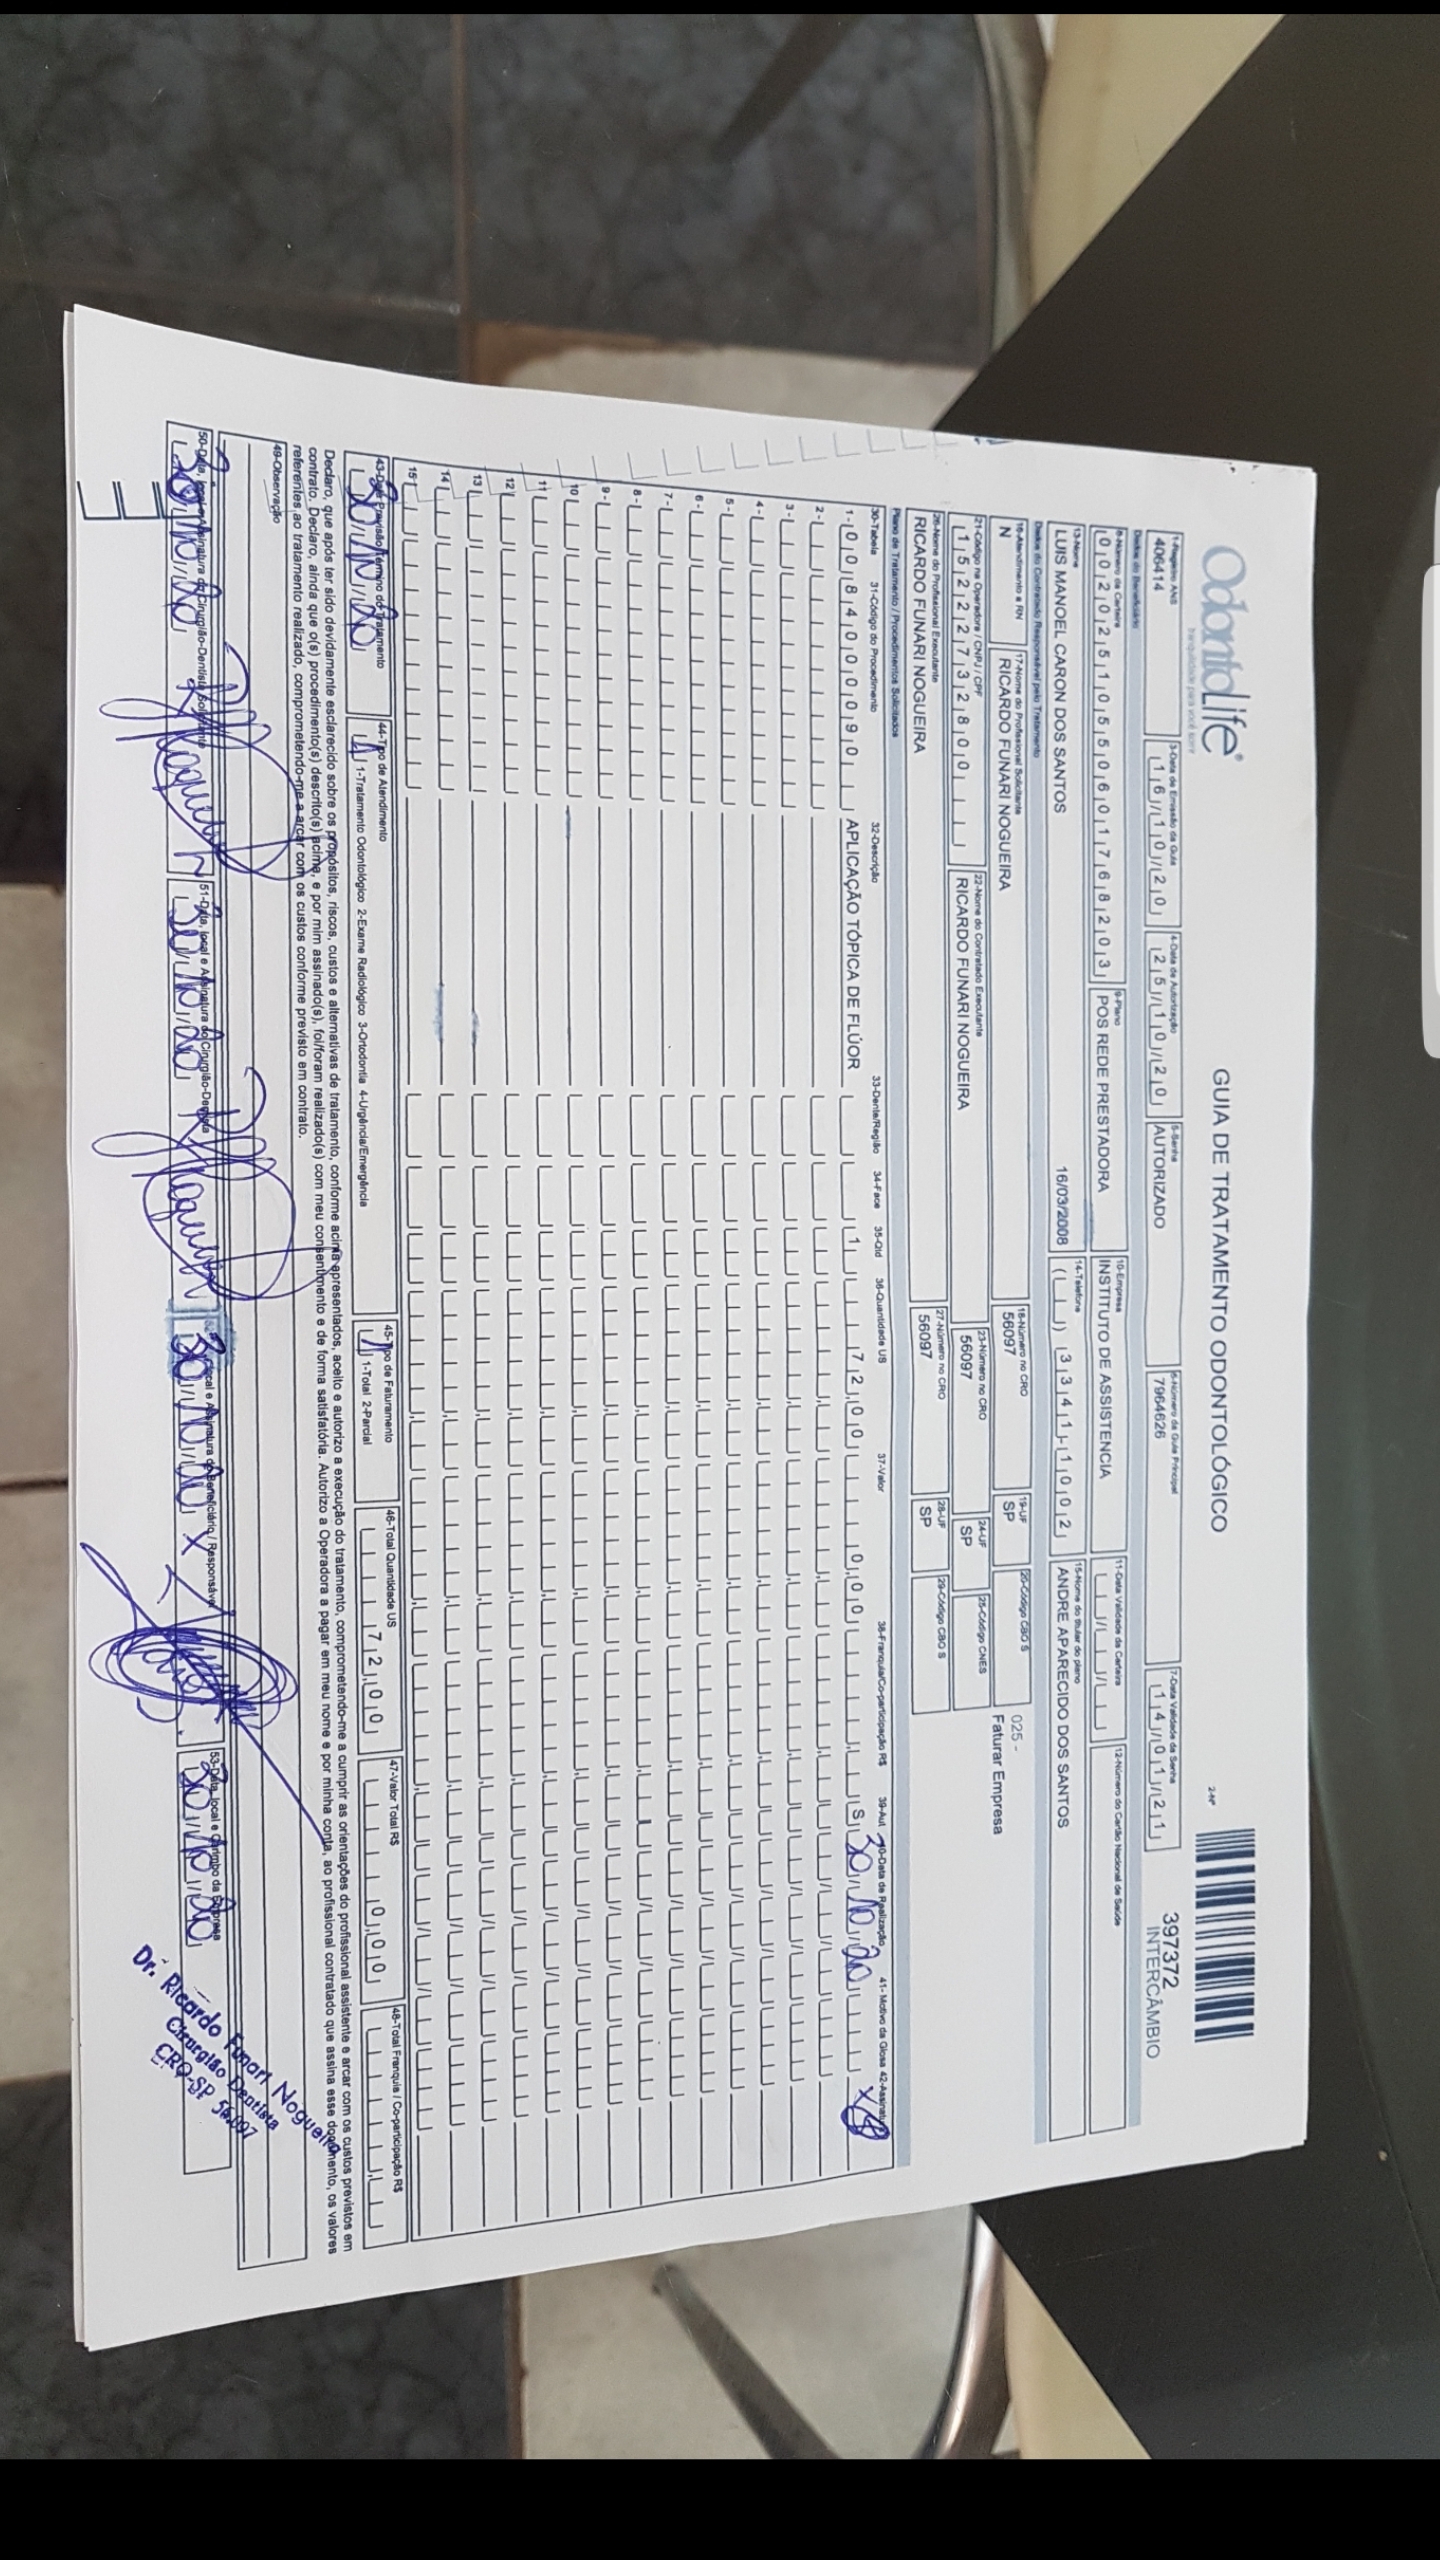 OdontoLife®
tranquilidade para você sorrir
GUIA DE TRATAMENTO ODONTOLÓGICO
2-Nº
397372
INTERCÂMBIO
1-Registro ANS 3-Data de Emissão da Guia 4-Data de Autorização 5-Senha 6-Número da Guia Principal 7-Data Validade da Senha
406414 16/10/20 25/10/20 AUTORIZADO 7964626 14/01/21
Dados do Beneficiário
8-Número da Carteira 9-Plano 10-Empresa 11-Data Validade da Carteira 12-Número do Cartão Nacional de Saúde
00202510550601768203 POS REDE PRESTADORA INSTITUTO DE ASSISTENCIA
13-Nome 14-Telefone 15-Nome do titular do plano
LUIS MANOEL CARON DOS SANTOS 16/03/2008 ( ) 3341-1002 ANDRE APARECIDO DOS SANTOS
Dados do Contratado Responsável pelo Tratamento
16-Atendimento a RN 17-Nome do Profissional Solicitante 18-Número no CRO 19-UF 20-Código CBO S
N RICARDO FUNARI NOGUEIRA 56097 SP
025 -
Faturar Empresa
21-Código na Operadora / CNPJ / CPF 22-Nome do Contratado Executante 23-Número no CRO 24-UF 25-Código CNES
15222732800 RICARDO FUNARI NOGUEIRA 56097 SP
26-Nome do Profissional Executante 27-Número no CRO 28-UF 29-Código CBO S
RICARDO FUNARI NOGUEIRA 56097 SP
Plano de Tratamento / Procedimentos Solicitados
30-Tabela 31-Código do Procedimento 32-Descrição 33-Dente/Região 34-Face 35-Qtd 36-Quantidade US 37-Valor 38-Franquia/Co-participação R$ 39-Aut 40-Data de Realização 41- Motivo da Glosa 42-Assinatura
1- 0084000090 APLICAÇÃO TÓPICA DE FLÚOR 1 72,00 0,00 S 30/10/20 X
2-
3-
4-
5-
6-
7-
8-
9-
10
11
12
13
14
15
43-Data Previsão Término do Tratamento 44-Tipo de Atendimento 45-Tipo de Faturamento 46-Total Quantidade US 47-Valor Total R$ 48-Total Franquia / Co-participação R$
30/10/20 1 1-Tratamento Odontológico 2-Exame Radiológico 3-Ortodontia 4-Urgência/Emergência 1 1-Total 2-Parcial 72,00 0,00
Declaro, que após ter sido devidamente esclarecido sobre os propósitos, riscos, custos e alternativas de tratamento, conforme acima apresentados, aceito e autorizo a execução do tratamento, comprometendo-me a cumprir as orientações do profissional assistente e arcar com os custos previstos em
contrato. Declaro, ainda que o(s) procedimento(s) descrito(s) acima, e por mim assinado(s), foi/foram realizado(s) com meu consentimento e de forma satisfatória. Autorizo a Operadora a pagar em meu nome e por minha conta, ao profissional contratado que assina esse documento, os valores
referentes ao tratamento realizado, comprometendo-me a arcar com os custos conforme previsto em contrato.
49-Observação
50-Data, local e Assinatura do Cirurgião-Dentista Solicitante 51-Data, local e Assinatura do Cirurgião-Dentista local e Assinatura do Beneficiário / Responsável 53-Data, local e Carimbo da Empresa
30/10/20 30/10/20 30/10/20 X 30/10/20
Dr. Ricardo Funari Nogueira
Cirurgião Dentista
CRO-SP 56.097